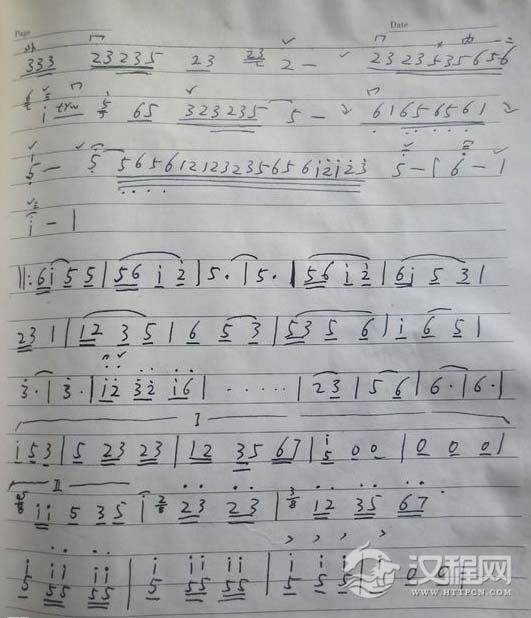 Page Date
333 23235 23 23 2 - 2323535656
6 i tr 5 65 323235 5 - 61656561
5 - 5 565612123235656i2i23 5 - | 6 - |
i - |
||: 6i 5 5 | 56 i 2 | 5· | 5· | 56 i 2 | 6i 5 3 |
23 1 | 12 3 5 | 6 5 3 | 53 5 6 | i 6 5 |
3· | 3· | i2 32 i6 | ······ | 23 | 5 6 | 6· | 6· |
I
i 5 3 | 5 23 23 | 12 35 67 | i 5 0 0 | 0 0 0 |
II
5/8 ii 5 35 | 2/8 23 23 | 3/8 12 35 67
i 5 ii 55 ii 55 | i 5 ii 55 ii 55 | i 5 i 5 i 5 | i 0 0
汉程网
WWW.HTTPCN.COM